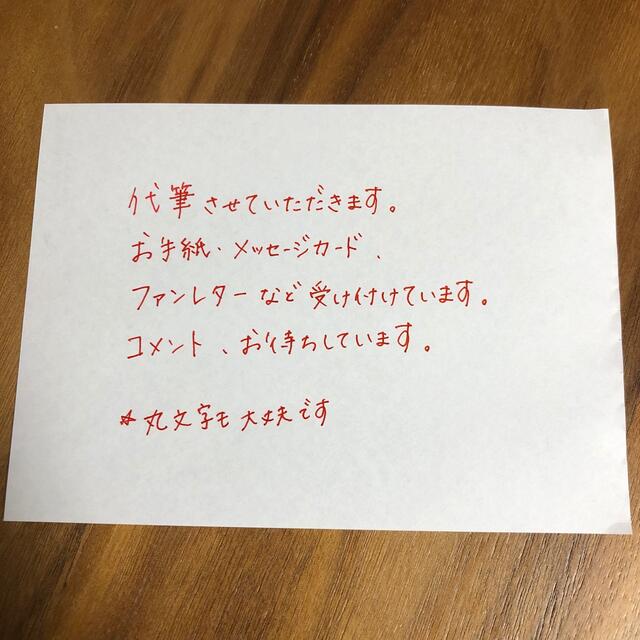 代筆させていただきます。
お手紙・メッセージカード、
ファンレターなど受け付けています。
コメント、お待ちしています。
☆丸文字も大丈夫です